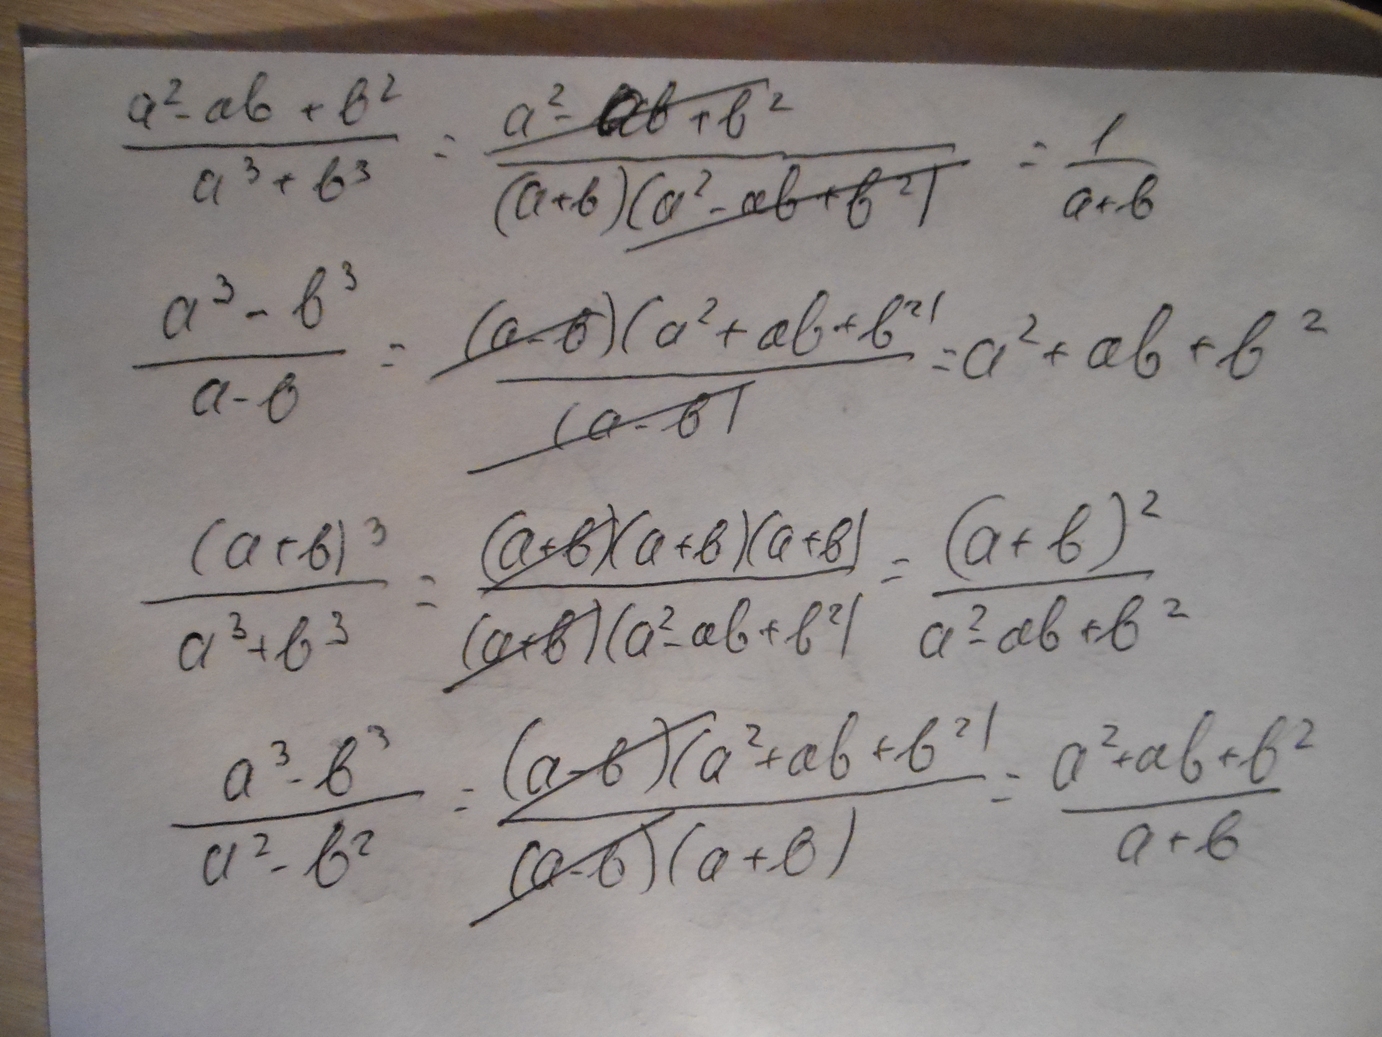 (a² - ab + b²)/(a³ + b³) = (a² - ab + b²)/((a+b)(a² - ab + b²)) = 1/(a+b)
(a³ - b³)/(a - b) = ((a - b)(a² + ab + b²))/((a - b)) = a² + ab + b²
(a+b)³/(a³+b³) = ((a+b)(a+b)(a+b))/((a+b)(a² - ab + b²)) = (a+b)²/(a² - ab + b²)
(a³ - b³)/(a² - b²) = ((a - b)(a² + ab + b²))/((a - b)(a + b)) = (a² + ab + b²)/(a + b)